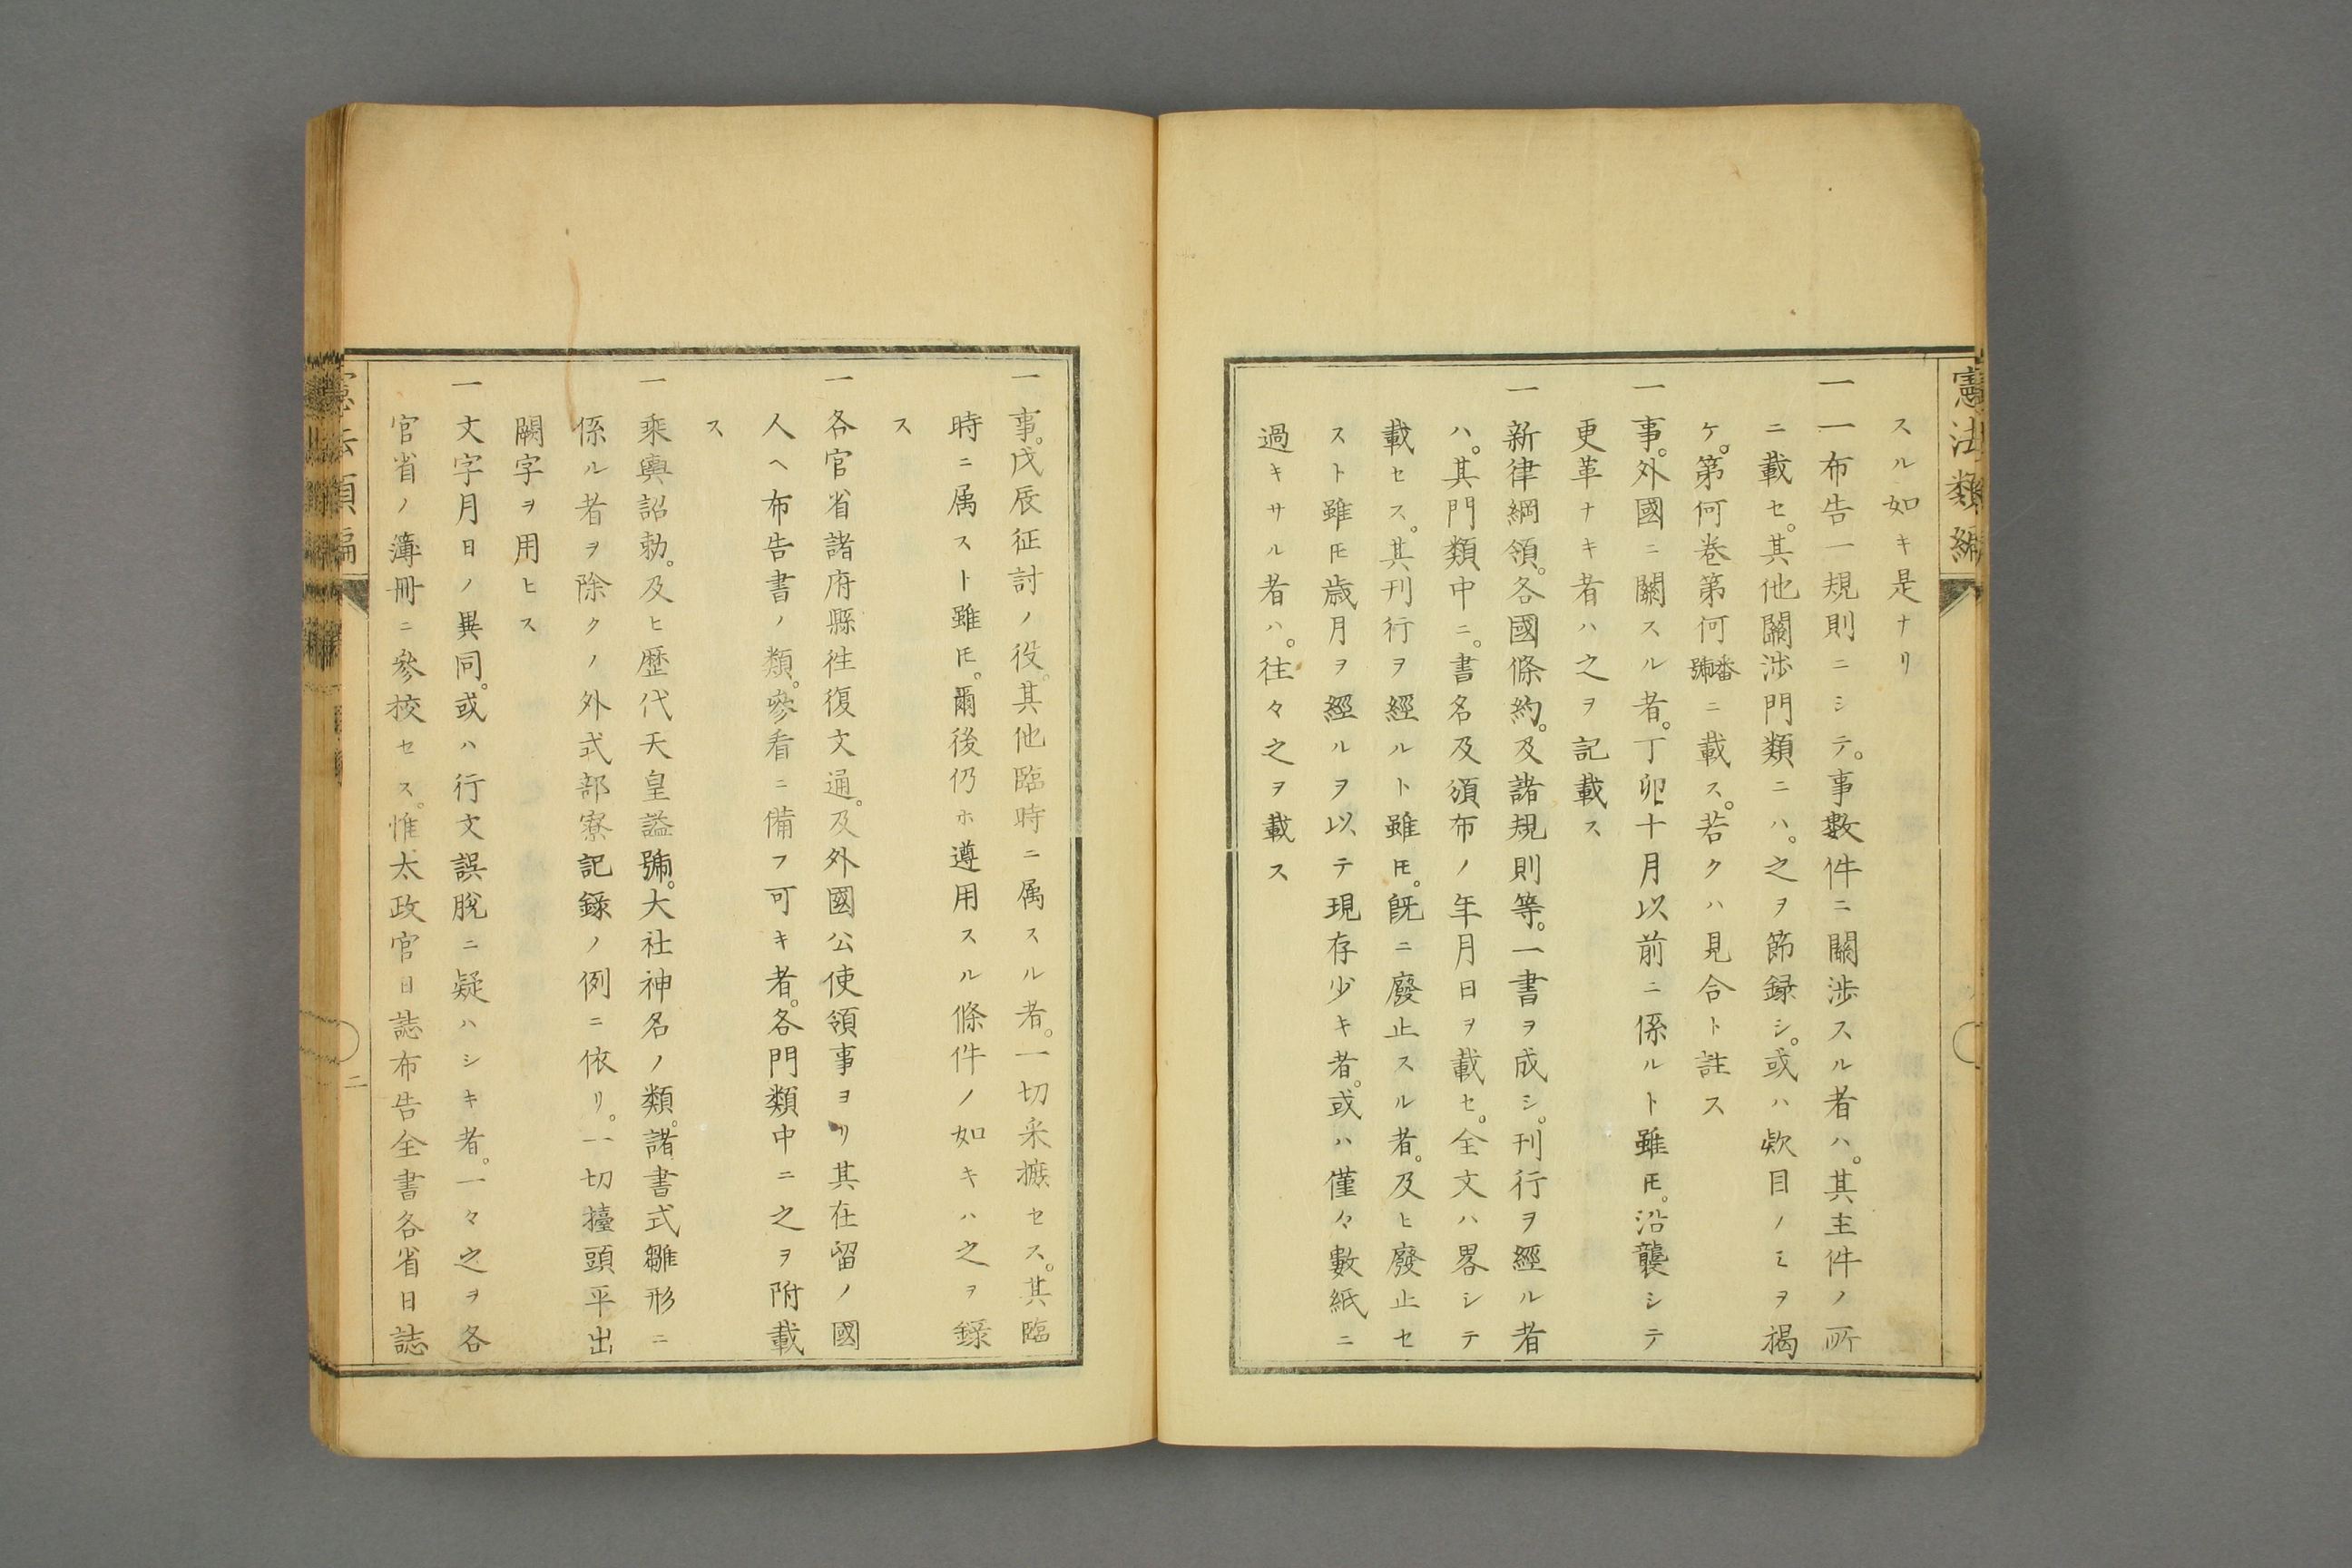 憲法類編
スル如キ是ナリ
一一布告一規則ニシテ。事數件ニ關渉スル者ハ。其主件ノ所
ニ載セ。其他關渉門類ニハ。之ヲ節録シ。或ハ欵目ノミヲ揭
ケ。第何卷第何番號ニ載ス。若クハ見合ト註ス
一事。外國ニ關スル者。丁卯十月以前ニ係ルト雖𪜈。沿襲シテ
更革ナキ者ハ之ヲ記載ス
一新律綱領。各國條約。及諸規則等。一書ヲ成シ。刊行ヲ經ル者
ハ。其門類中ニ。書名及頒布ノ年月日ヲ載セ。全文ハ畧シテ
載セス。其刊行ヲ經ルト雖𪜈。既ニ廢止スル者。及ヒ廢止セ
スト雖𪜈歳月ヲ經ルヲ以テ現存少キ者。或ハ僅々數紙ニ
過キサル者ハ。往々之ヲ載ス
一事。戊辰征討ノ役。其他臨時ニ属スル者。一切采摭セス。其臨
時ニ属スト雖𪜈。爾後仍ホ遵用スル條件ノ如キハ之ヲ錄
ス
一各官省諸府縣徃復文通。及外國公使領事ヨリ其在留ノ國
人ヘ布告書ノ類。參看ニ備フ可キ者。各門類中ニ之ヲ附載
ス
一乘輿詔勅。及ヒ歷代天皇謚號。大社神名ノ類。諸書式雛形ニ
係ル者ヲ除クノ外式部寮記錄ノ例ニ依リ。一切擡頭平出
闕字ヲ用ヒス
一文字月日ノ異同。或ハ行文誤脫ニ疑ハシキ者。一々之ヲ各
官省ノ簿冊ニ參校セス。惟太政官日誌布告全書各省日誌
憲法類編
二